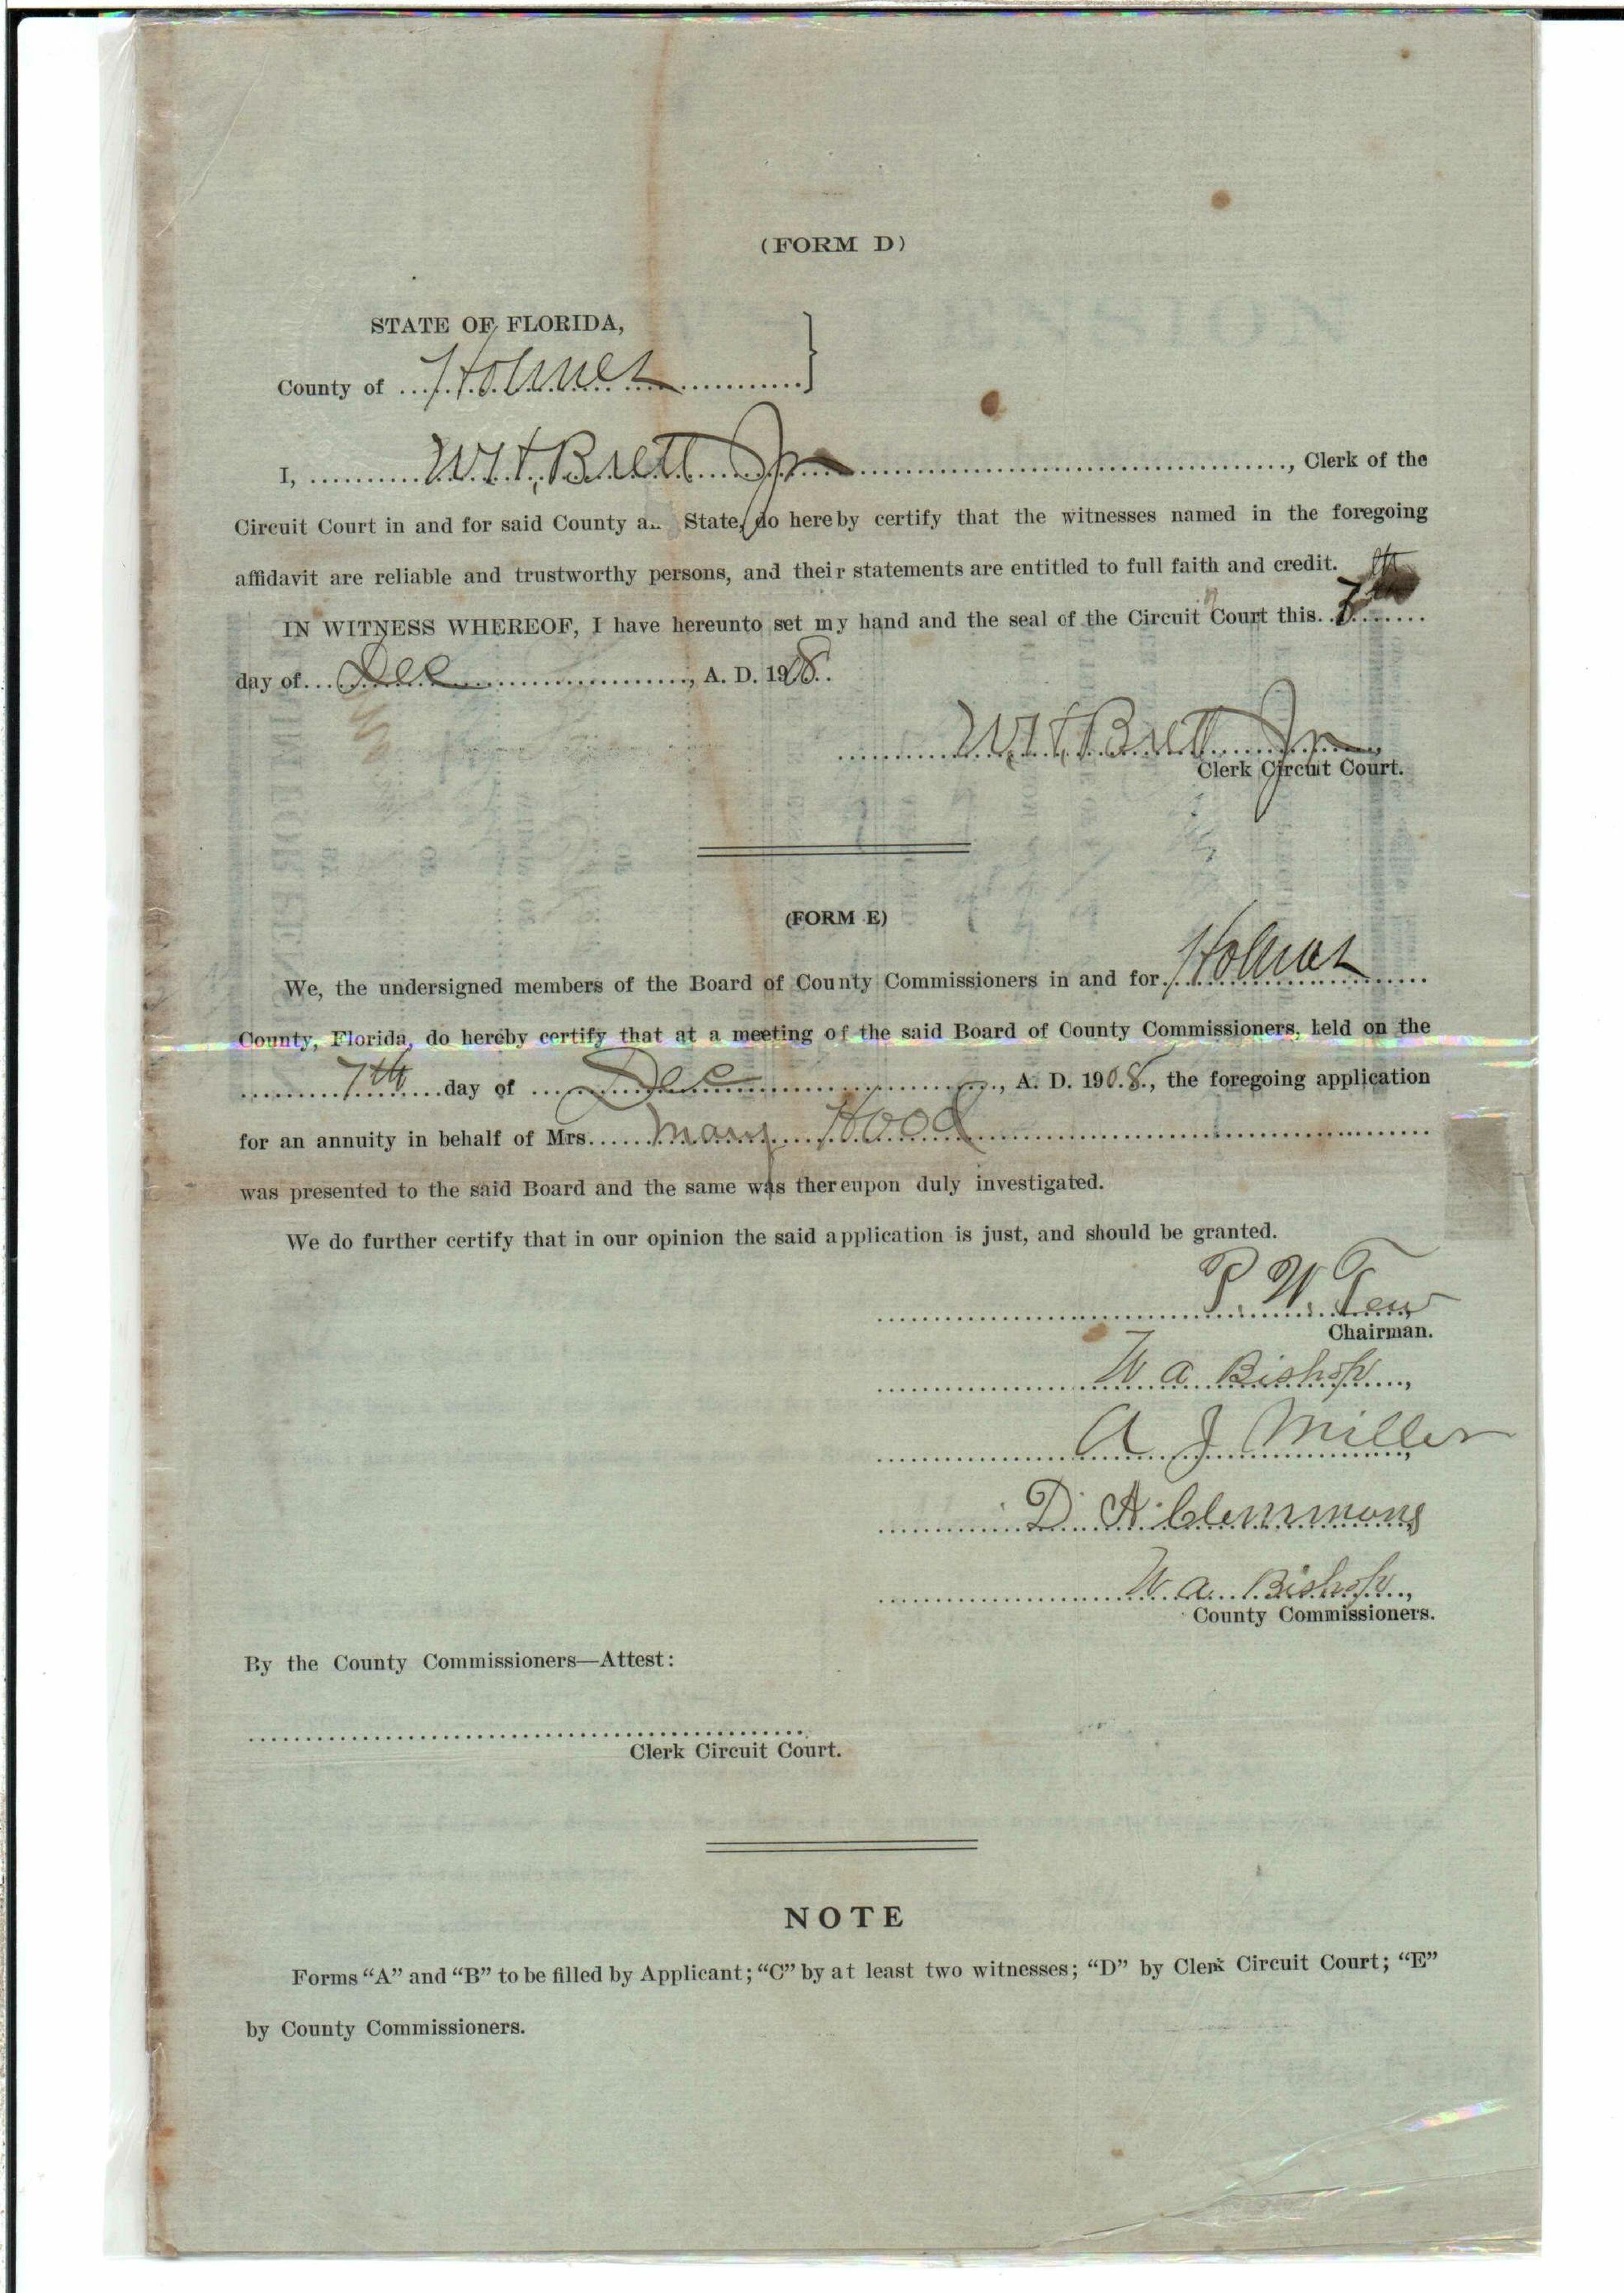 (FORM D)
STATE OF FLORIDA,
County of Holmes
I, W. H. Brett Jr, Clerk of the
Circuit Court in and for said County a State, do hereby certify that the witnesses named in the foregoing
affidavit are reliable and trustworthy persons, and their statements are entitled to full faith and credit.
IN WITNESS WHEREOF, I have hereunto set my hand and the seal of the Circuit Court this 7th
day of Dec, A. D. 1908.
W. H. Brett Jr
Clerk Circuit Court.
(FORM E)
We, the undersigned members of the Board of County Commissioners in and for Holmes
County, Florida, do hereby certify that at a meeting of the said Board of County Commissioners, held on the
7th day of Dec, A. D. 1908., the foregoing application
for an annuity in behalf of Mrs. Mary Hood
was presented to the said Board and the same was thereupon duly investigated.
We do further certify that in our opinion the said application is just, and should be granted.
P. W. Tew
Chairman.
W a Bishop,
A J Miller
D. A. Clemmons
W. a. Bishop,
County Commissioners.
By the County Commissioners—Attest:
Clerk Circuit Court.
NOTE
Forms “A” and “B” to be filled by Applicant; “C” by at least two witnesses; “D” by Clerk Circuit Court; “E”
by County Commissioners.